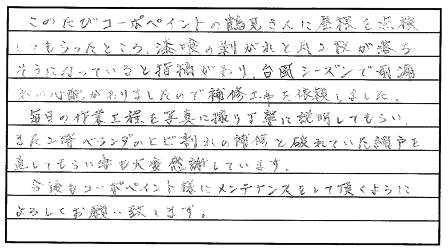 このたびコーポペイントの鶴見さんに屋根を点検
してもらったところ、漆喰の剥がれと瓦2枚が落ち
そうになっていると指摘があり、台風シーズンで雨漏
れの心配がありましたので補修工事を依頼しました。
毎日の作業工程を写真に撮り丁寧に説明してもらい、
また2階ベランダのひび割れの補修と破れていた網戸を
直してもらい妻も大変感謝しています。
今後もコーポペイント様にメンテナンスをして頂くように
よろしくお願い致します。